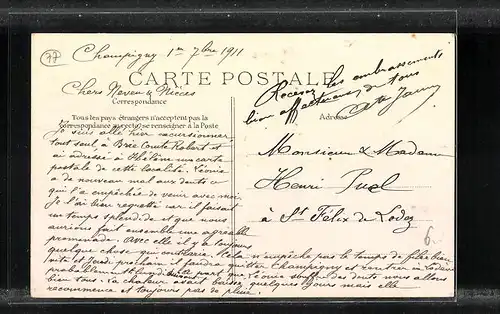 77
Champigny 1er 7bre 1911
Chers Neveu & Nièces
CARTE POSTALE
Recevez les embrassements
bien affectueux de tous
Correspondance
Tous les pays étrangers n'acceptent pas la
Correspondance au recto, se renseigner à la Poste
Adresse
Je suis allé hier excursionner
tout seul à Brie Comte Robert et
ai adressé à Hélène une carte
postale de cette localité. Léonie
a de nouveau mal aux dents ce
qui l'a empêchée de venir avec moi.
Je l'ai bien regretté car il faisait
un temps splendide et que nous
aurions fait ensemble une agréable
promenade. Avec elle il y a toujours
quelque chose qui contrarie. Cela n'empêche pas le temps de filer bien
vite et Jeudi prochain il faudra quitter Champigny et rentrer
probablement lundi. part que Léonie souffre des dents nous allons
bien tous. La chaleur avait baissé quelques jours mais elle
recommence et toujours pas de pluie.
Monsieur & Madame
Henri Puel
à St Félix de Lodez
6.